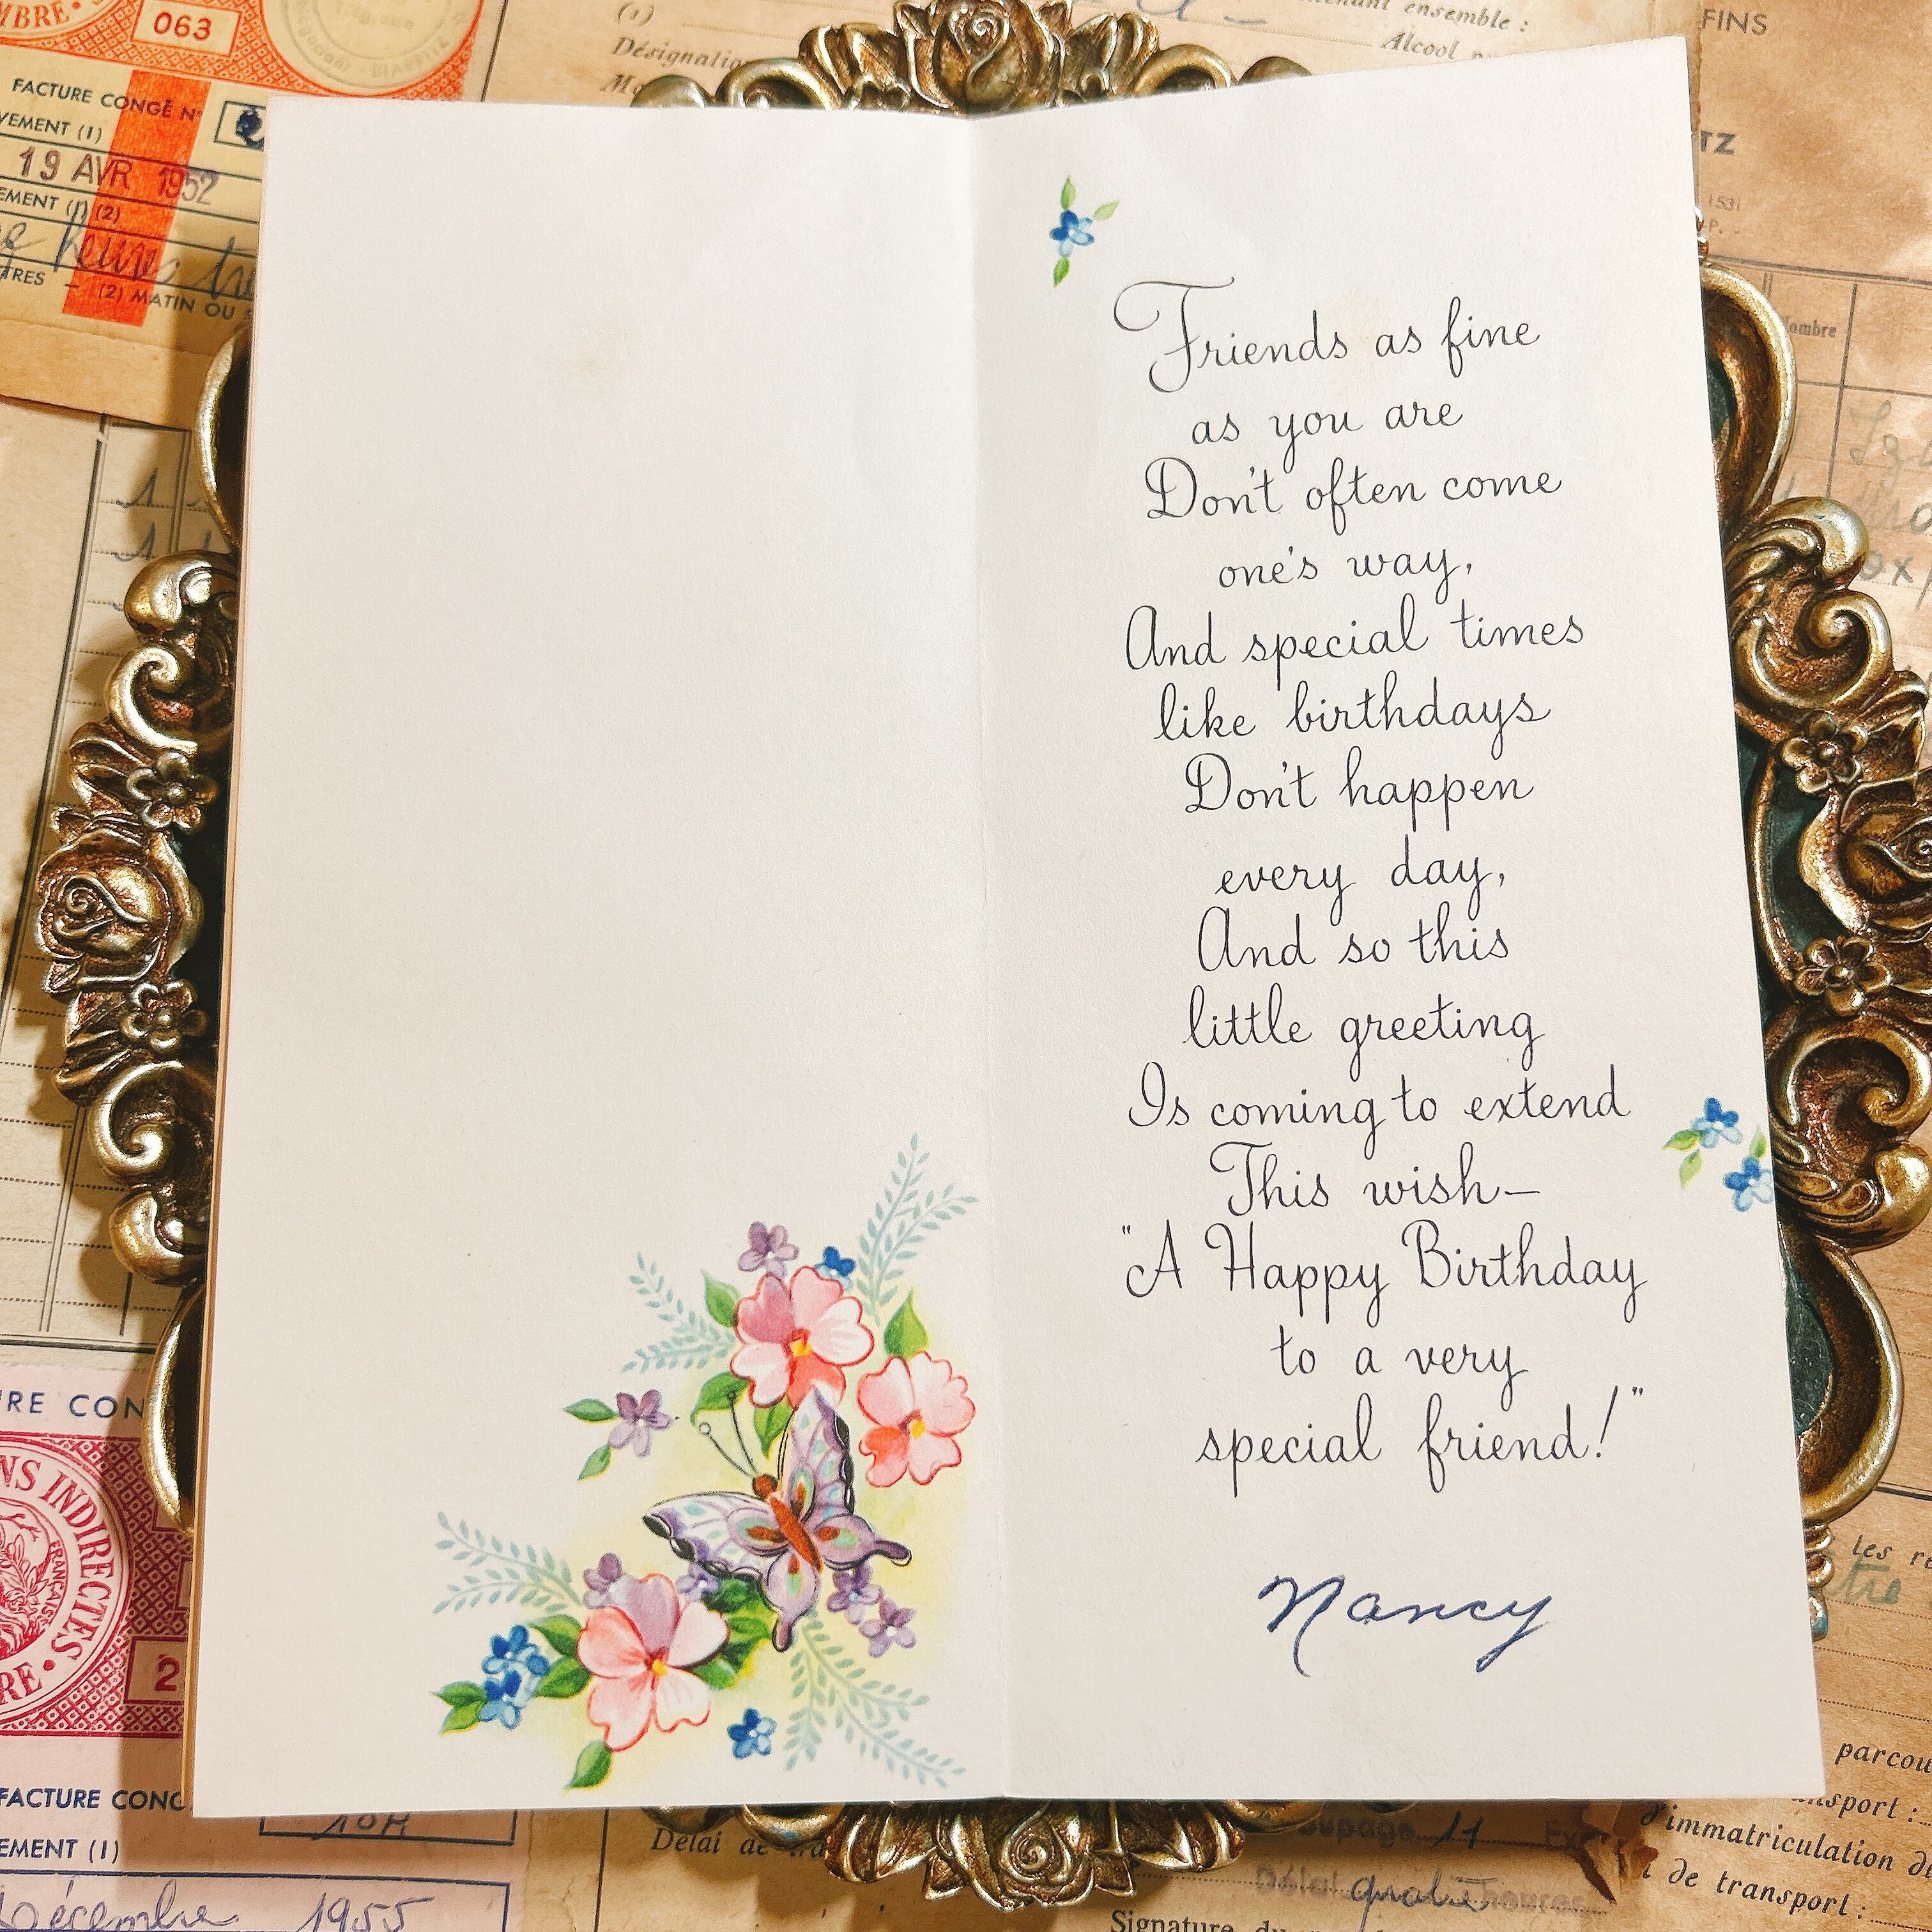 063
FACTURE CONGÉ N°
VEMENT (1)
19 AVR 1952
EMENT (1) (2)
TRES - (2) MATIN OU
(1)
ensemble :
Alcool
FINS
TZ
1531
P. -
Friends as fine
as you are
Don't often come
one's way,
And special times
like birthdays
Don't happen
every day,
And so this
little greeting
Is coming to extend
This wish—
"A Happy Birthday
to a very
special friend!"
Nancy
RE CON
NS INDIRECTES
FRANÇAISE
2
FACTURE CONG
EMENT (1)
10H
Décembre 1955
Délai de
les re
parcou
nsport :
d'immatriculation du
de transport :
Délai heures
Signature du